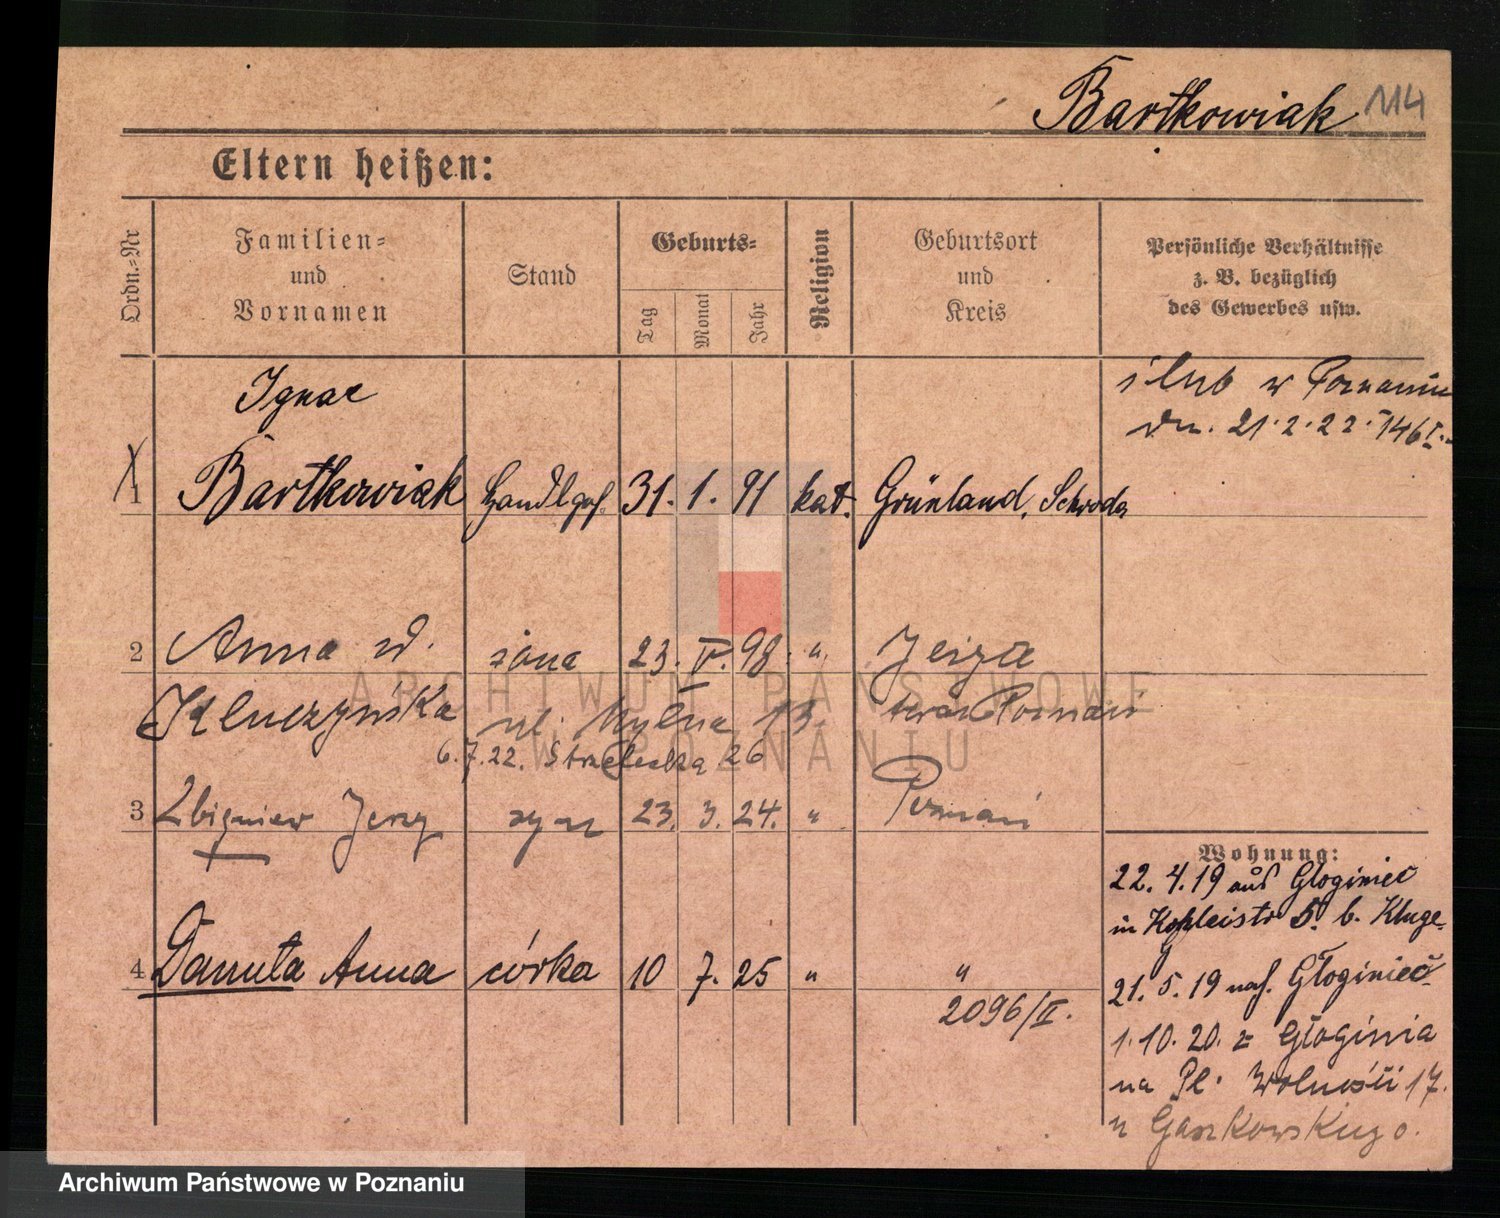 Bartkowiak 114
Eltern heißen:
Ordn.-Nr
Familien-
und
Vornamen
Stand
Geburts-
Tag
Monat
Jahr
Religion
Geburtsort
und
Kreis
Persönliche Verhältnisse
z. B. bezüglich
des Gewerbes usw.
Ignac
ślub w Poznaniu
dn. 21.2.22. 146I.
1 Bartkowiak Handlgeh. 31. 1. 91 kat. Grünland, Schroda
2 Anna zd. żona 23. V. 98. " Jerzyce
Kluczyńska ul. Młyńska 13 Poznań
6.7.22. Strzelecka 26
3 Zbigniew Jerzy syn 23. 3. 24. " Poznań
4 Danuta Anna córka 10 7. 25 " "
2096/II.
Wohnung:
22. 4. 19 aus Gloginiec
in 5. b. Kluge
21. 5. 19 nach Głoginiec
1.10.20. z Głogińia
na Pl. Wolności 17.
u Gaszkowskiego.
ARCHIWUM PAŃSTWOWE
W POZNANIU
Archiwum Państwowe w Poznaniu